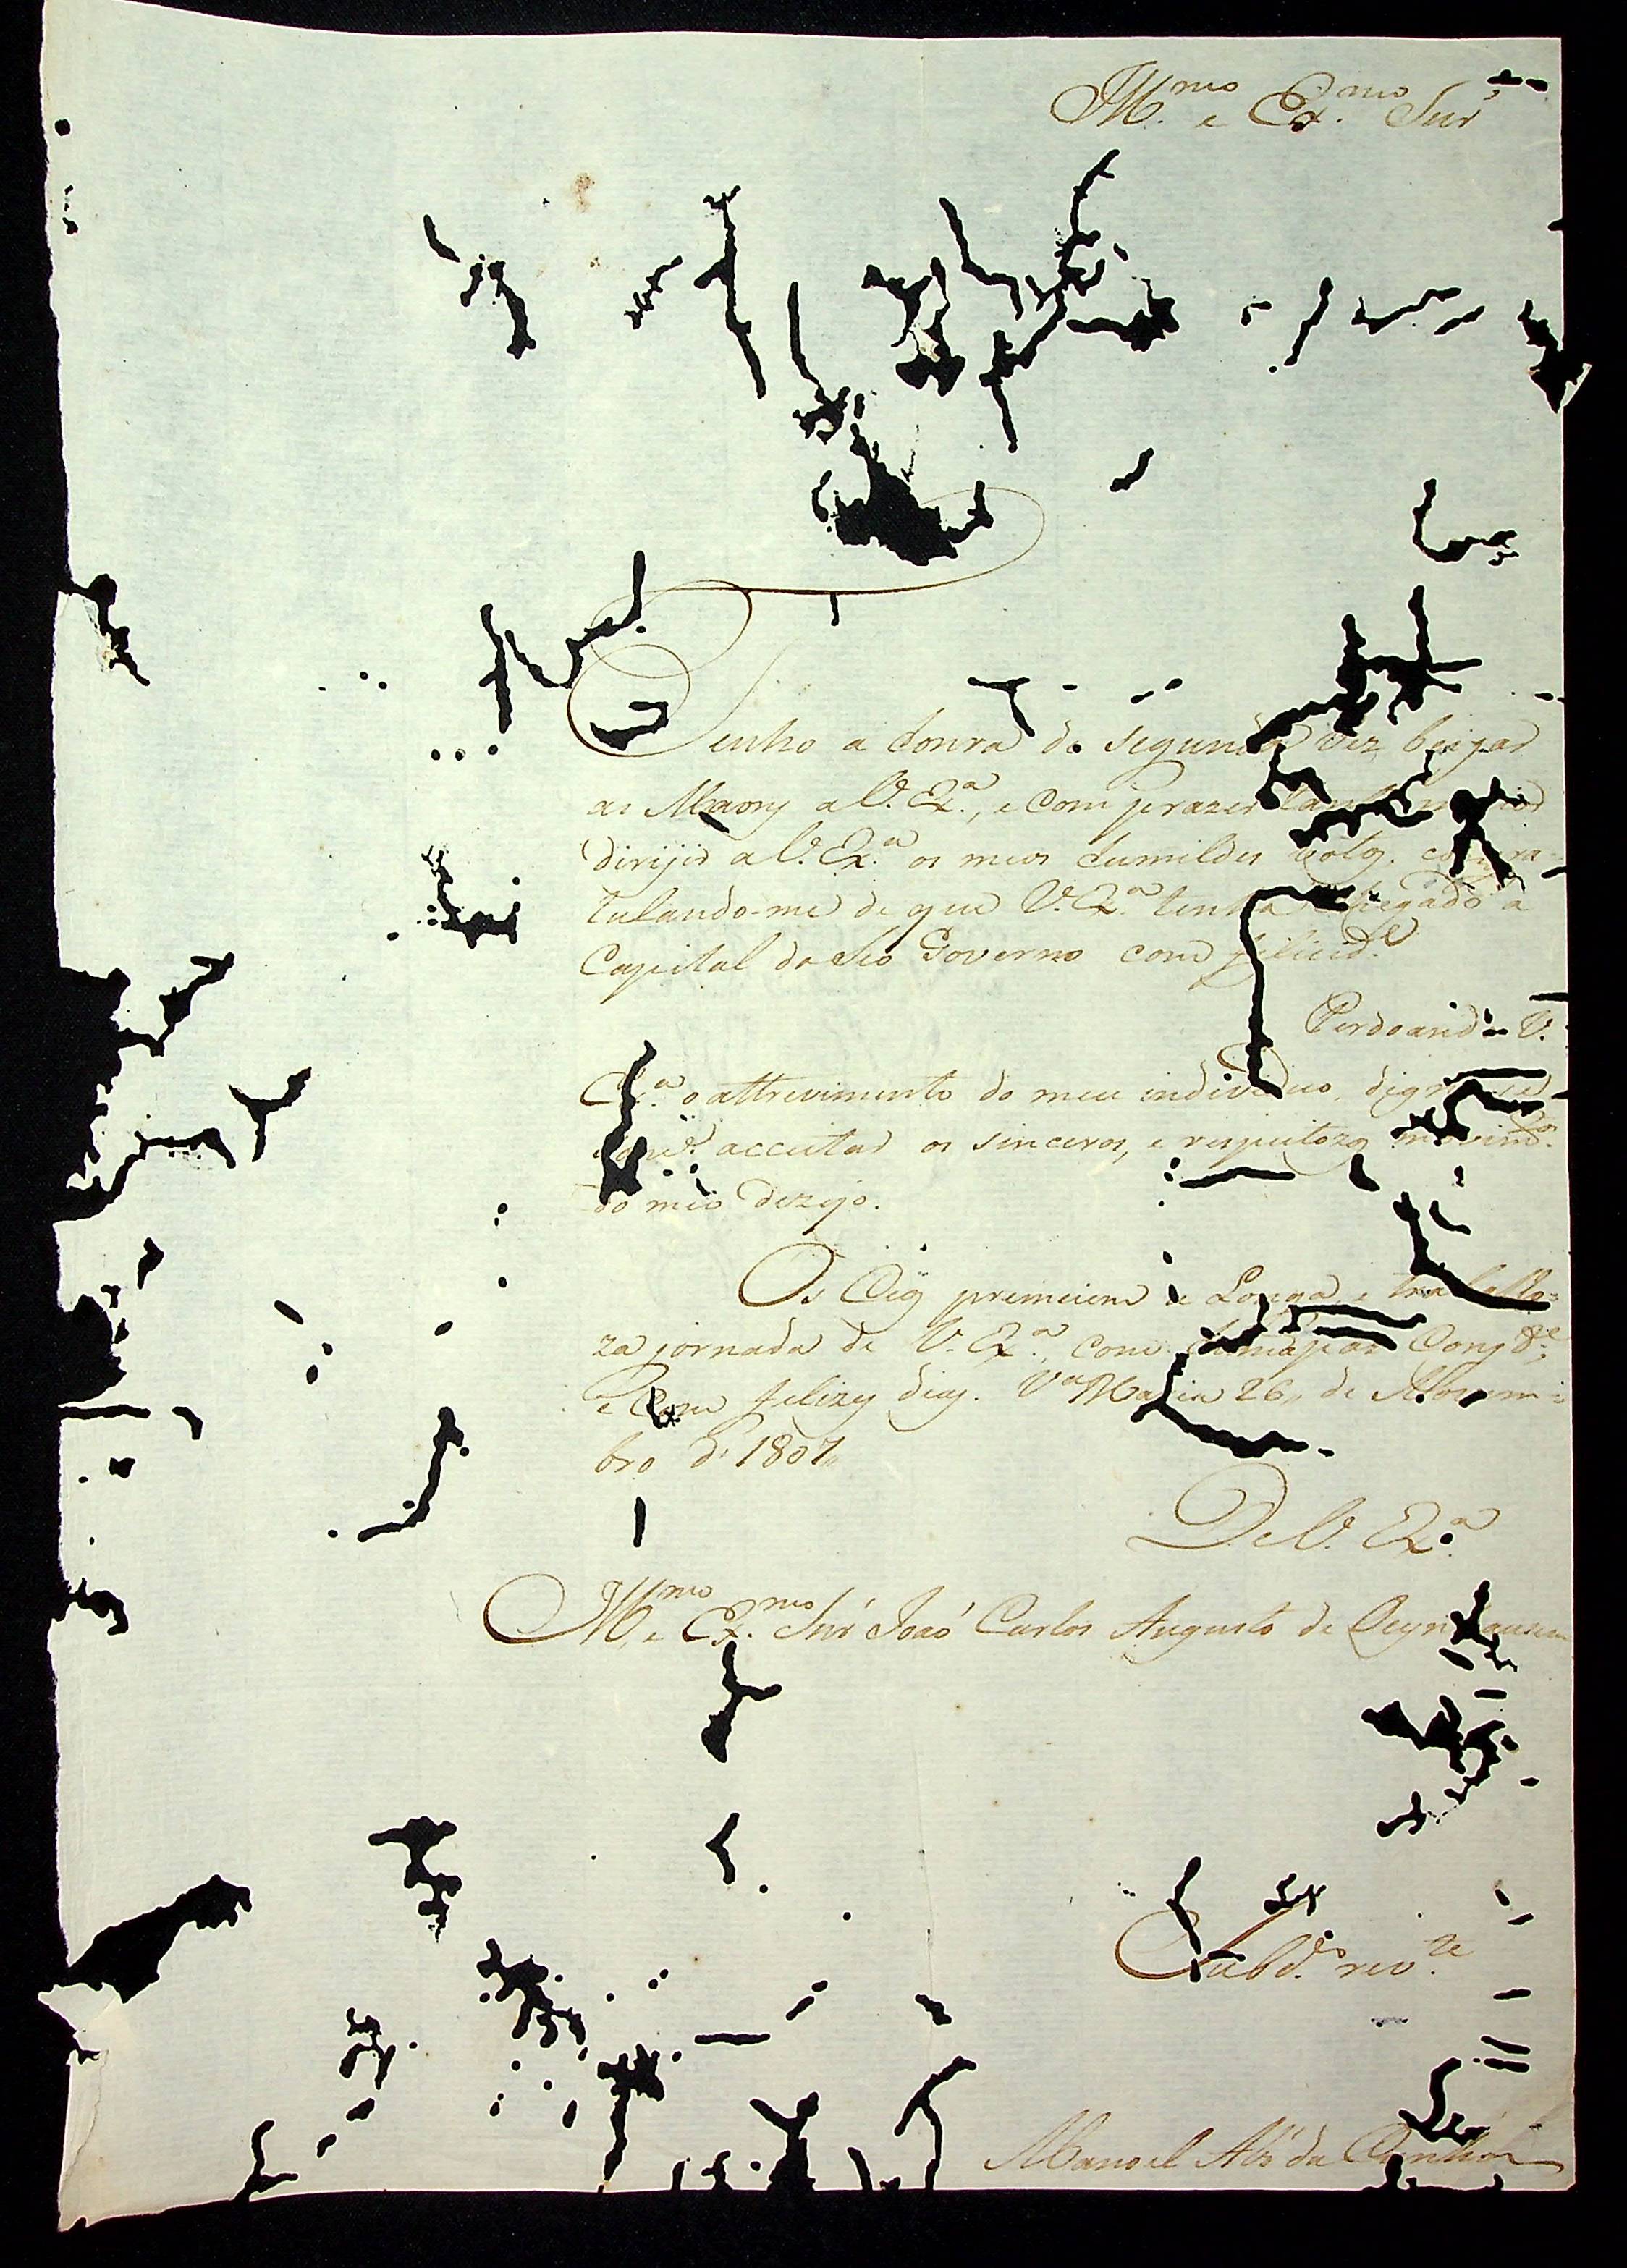 Ill.mo e Ex.mo Snr'
Tenho a honra de segunda vez beijar
as Maons a V. Ex.a, e com prazer
dirijir a V. Ex.a os meus humildes votos.
tulando-me de que V. Ex.a tenha chegado a
Capital do seo Governo com felicid.e
Perdoand V.
Ex.a o attrevimento do meu individuo,
acceitar os sinceros, e respeitozos
do meo dezejo.
Os Ceos premeiem a Longa, e traballo-
za jornada de V. Ex.a, com
e com felizes dias. V.a Maria 26, de Novem-
bro d' 1807
De V. Ex.a
Ill.mo e Ex.mo Snr' João Carlos Augusto de Oeynhausen
Subd.o rev.te
Manoel Alz' da Cunha